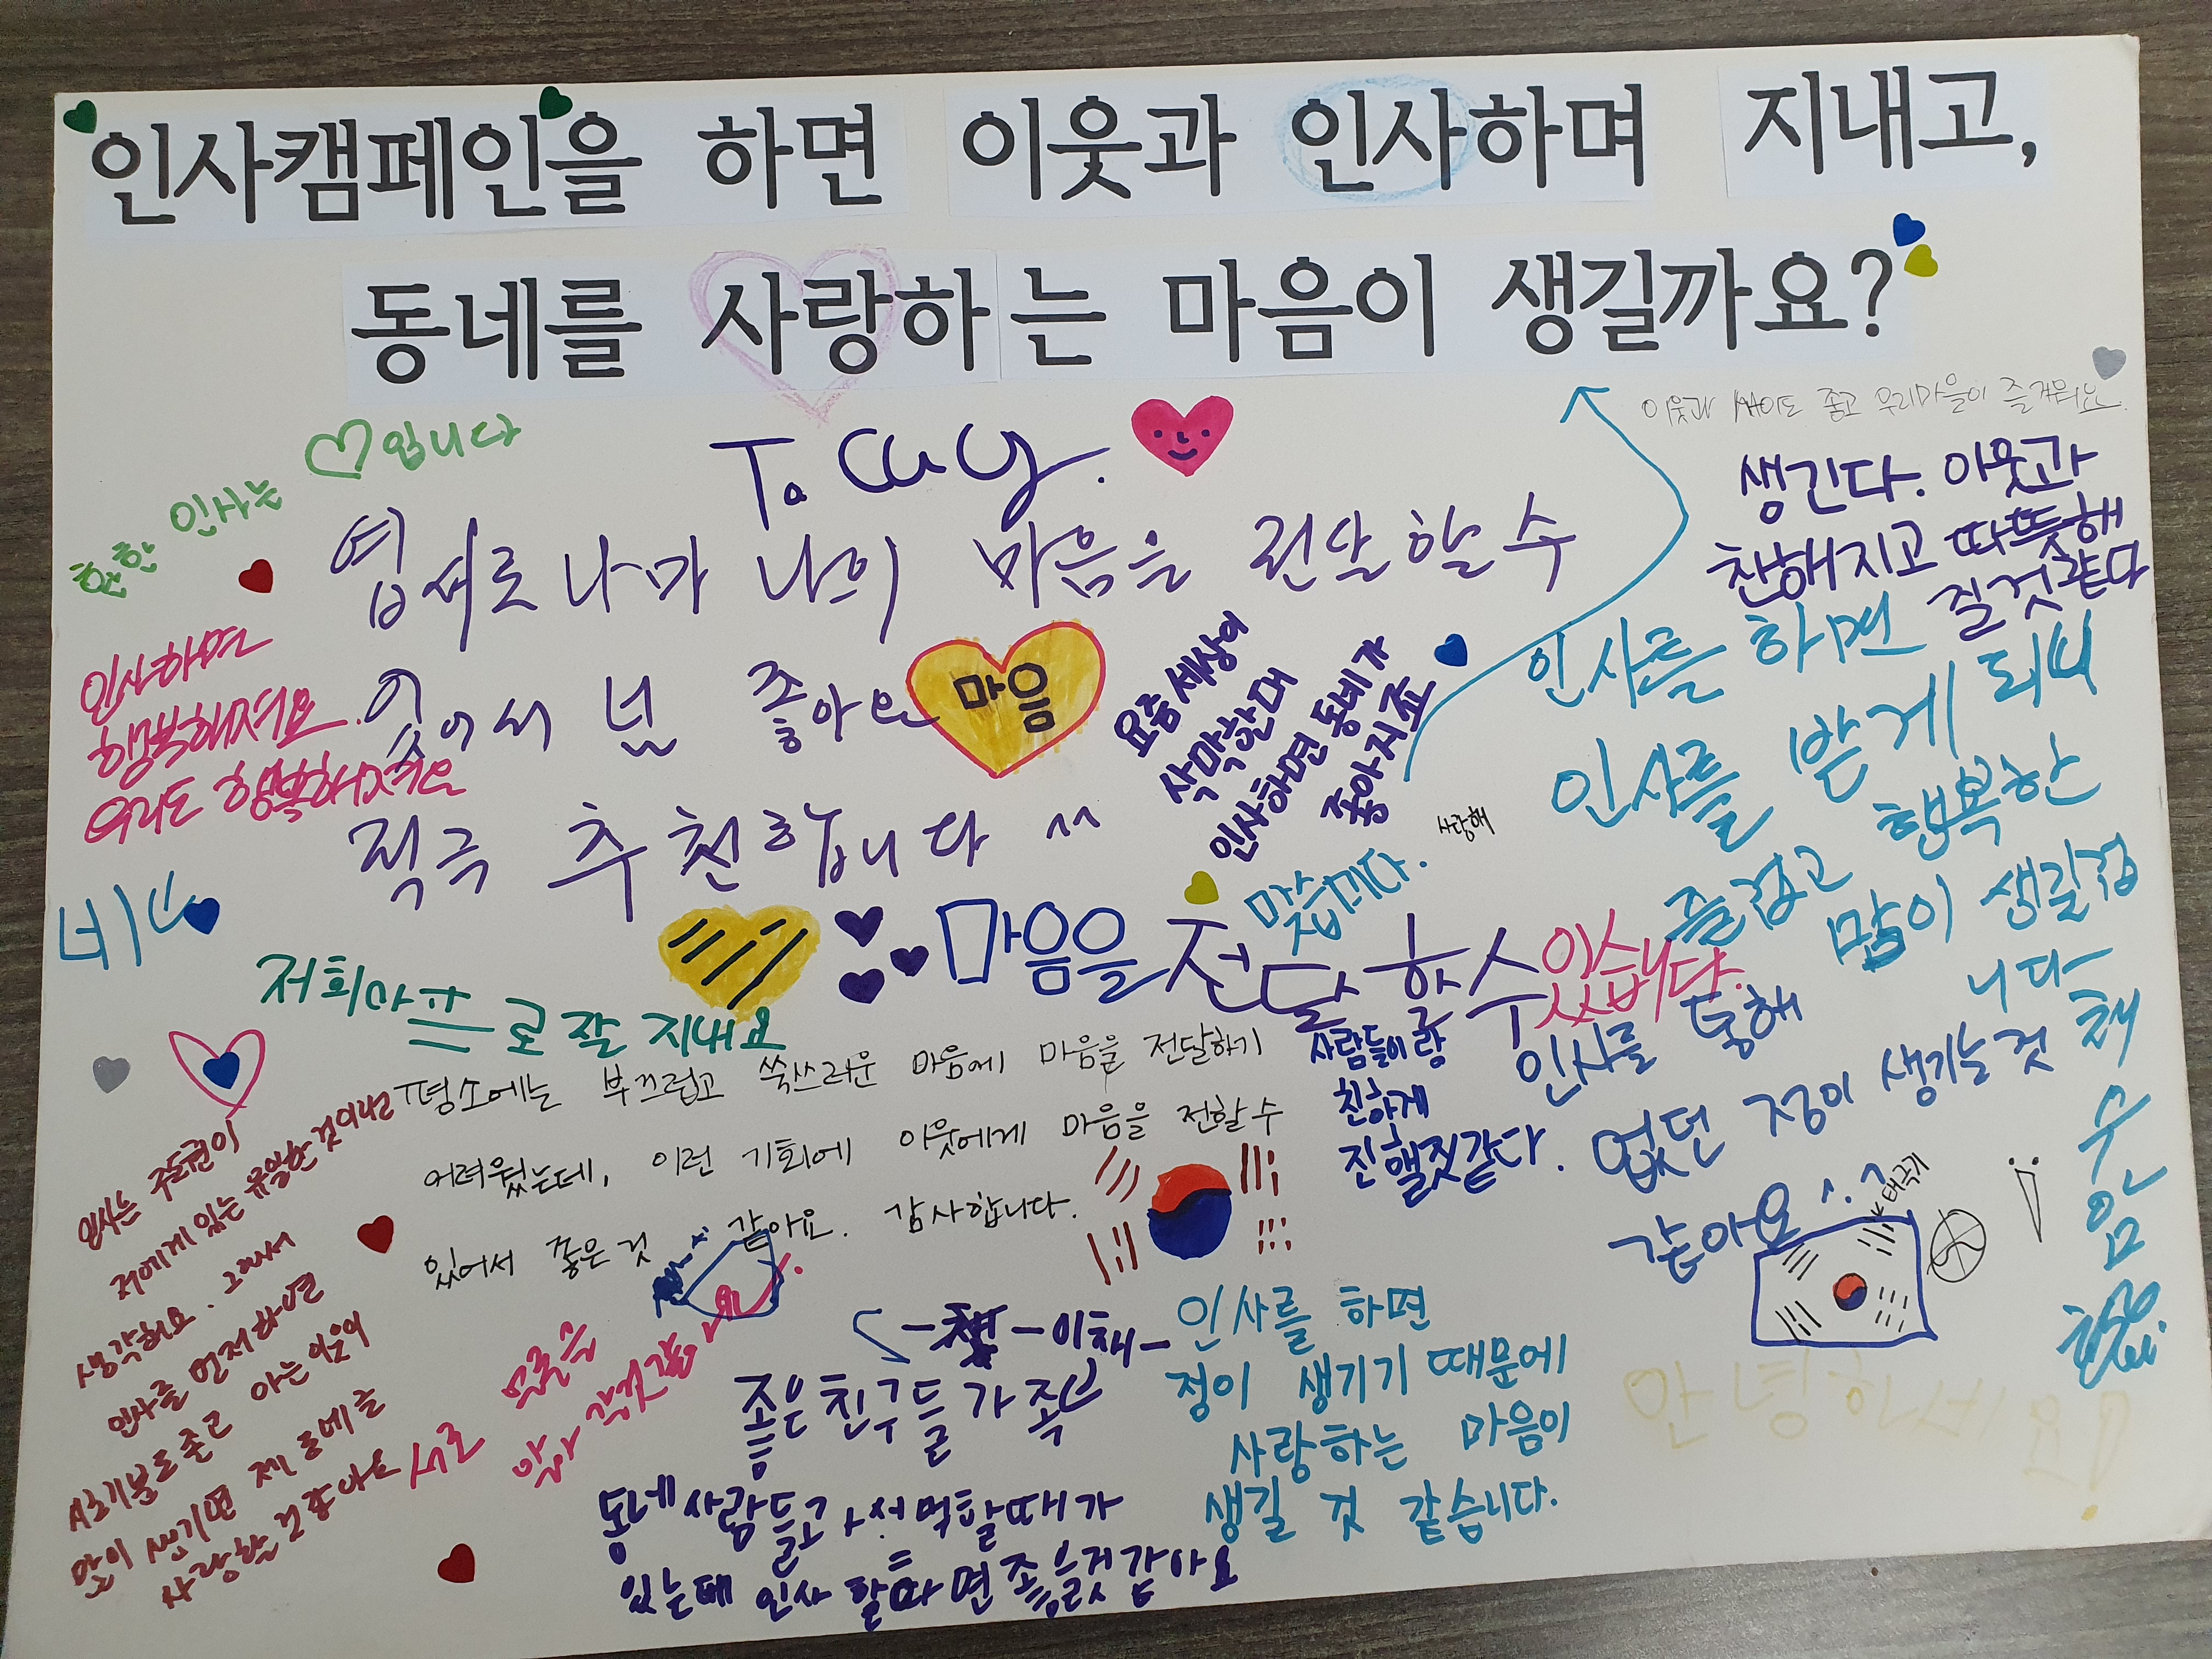 인사캠페인을 하면 이웃과 인사하며 지내고,
동네를 사랑하는 마음이 생길까요?
이웃과 사이도 좋고 우리마을이 즐거워요.
환한 인사는 ♡입니다
엽서로나마 나의 마음을 전달할 수
있어서 넘 좋아요
적극 추천합니다 ^^
마음
생긴다. 이웃과
친해지고 따뜻해
질것 같다
인사하면
행복해져요.
우리도 행복해져요
요즘 세상이
삭막한대
인사하면 동네가
좋아저죠
사랑해
맞습니다.
인사를 하면
인사를 받게 되니
즐겁고 행복한
많이 생길겁
니다
네
마음을 전달 할 수 있습니다.
저희
로 잘 지내요
평소에는 부끄럽고 쑥쓰러운 마음에 마음을 전달하기
어려웠는데, 이런 기회에 이웃에게 마음을 전할 수
있어서 좋은 것 같아요. 감사합니다.
사람들이랑
친하게
진핼짓같다.
인사를 통해
없던 정이 생기는 것
같아요 ^.^
태극기
인사는 주도권이
저에게 있는 유일한 것이라
생각해요. 그래서
인사를 먼저하면
기분도 좋고 아는 이웃이
많이 생기면 제 동네를
사랑할 것 같아요
서로
이해
좋은 친구들 가족
동네사람들고
있는데 인사
인사를 하면
정이 생기기 때문에
사랑하는 마음이
생길 것 같습니다.
안녕하세요!